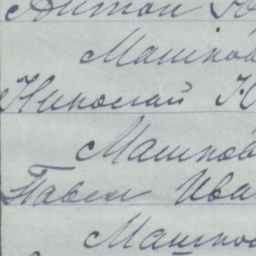 Антон Ю
Машков
Николай Ю
Машков
Павел Ива
Машков